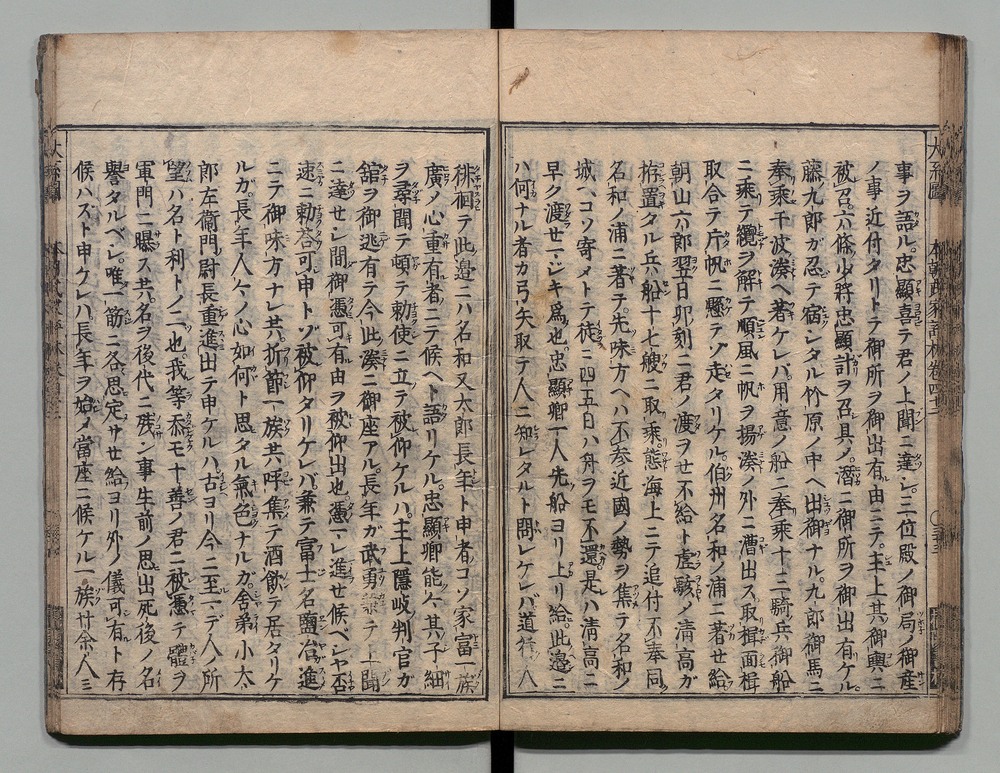 事ヲ語ル。忠顯喜テ君ノ上聞ニ達シ。三位殿ノ御局ノ御産
ノ事近付タリトテ御所ヲ御出有由ニテ。主上其御輿ニ
被召。六條少將忠顯計ヲ召具ノ。潛ニ御所ヲ御出有ケル。
藤九郎ガ忍テ宿レタル竹原ノ中ヘ出御ナル。九郎御馬ニ
奉乘千波湊ヘ著ケレバ。用意ノ船ニ奉乘十三騎ノ兵御船
ニ乘テ纜ヲ解テ順風ニ帆ヲ揚湊ノ外ニ漕出ス取揖面楫
取合テ片帆ニ懸テゾ走タリケル。伯州名和ノ浦ニ著せ給
朝山六郎翌日卯刻ニ君ノ渡ヲせ不給ト虚騒ノ清高ガ
拵置タル兵船十七艘ニ取乘。態海上ニテ追付不奉同
名和ノ浦ニ著テ。先味方ヘハ不参近國ノ勢ヲ集テ名和ノ
城ヘコソ寄メトテ徒ニ四五日ハ舟ヲモ不還是ハ清高ニ
早ク渡せーシキ爲也忠顯卿一人先船ヨリ上リ給。此邉ニ
ハ何ナル者カ弓矢取テ人ニ知レタルト問レケレバ道行人
徘徊テ此邉ニハ名和又太郎長年ト申者コソ家富一族
廣ノ心重有者ニテ候ヘト語リケル。忠顯卿能々其子細
ヲ尋聞テ頓テ勅使ニ立テ被仰ケルハ。主上隱岐判官ガ
舘ヲ御逃有テ今此湊ニ御座アル。長年ガ武勇兼テ上聞
ニ達せシ間御憑可有由ヲ被仰出也。憑ーレ進せ候ベシヤ否
速ニ勅荅可申トゾ被仰タリケレバ兼テ富士名鹽冶進
ニテ御味方ナレ共。折節一族共呼集テ酒飲テ居タリケ
ルガ長年人々ノ心如何ト思タル氣色ナルガ。舍弟小太
郎左衞門尉長重進出テ申ケルハ古ヨリ今ニ至ーデ人ノ所
望ハ名ト利トノ二也。我等忝モ十善ノ君ニ被憑テ體ヲ
軍門ニ曝ス共。名ヲ後代ニ殘ン事生前ノ思出死後ノ名
譽タルベレ。唯一筋ニ各思定サせ給ヨリ外ノ儀可有ト存
候ハズト申ケレハ長年ヲ始ノ當座ニ候ケル一族廿余人三